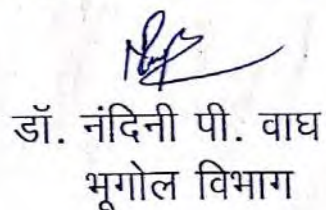 डॉ. नंदिनी पी. वाघ
भूगोल विभाग